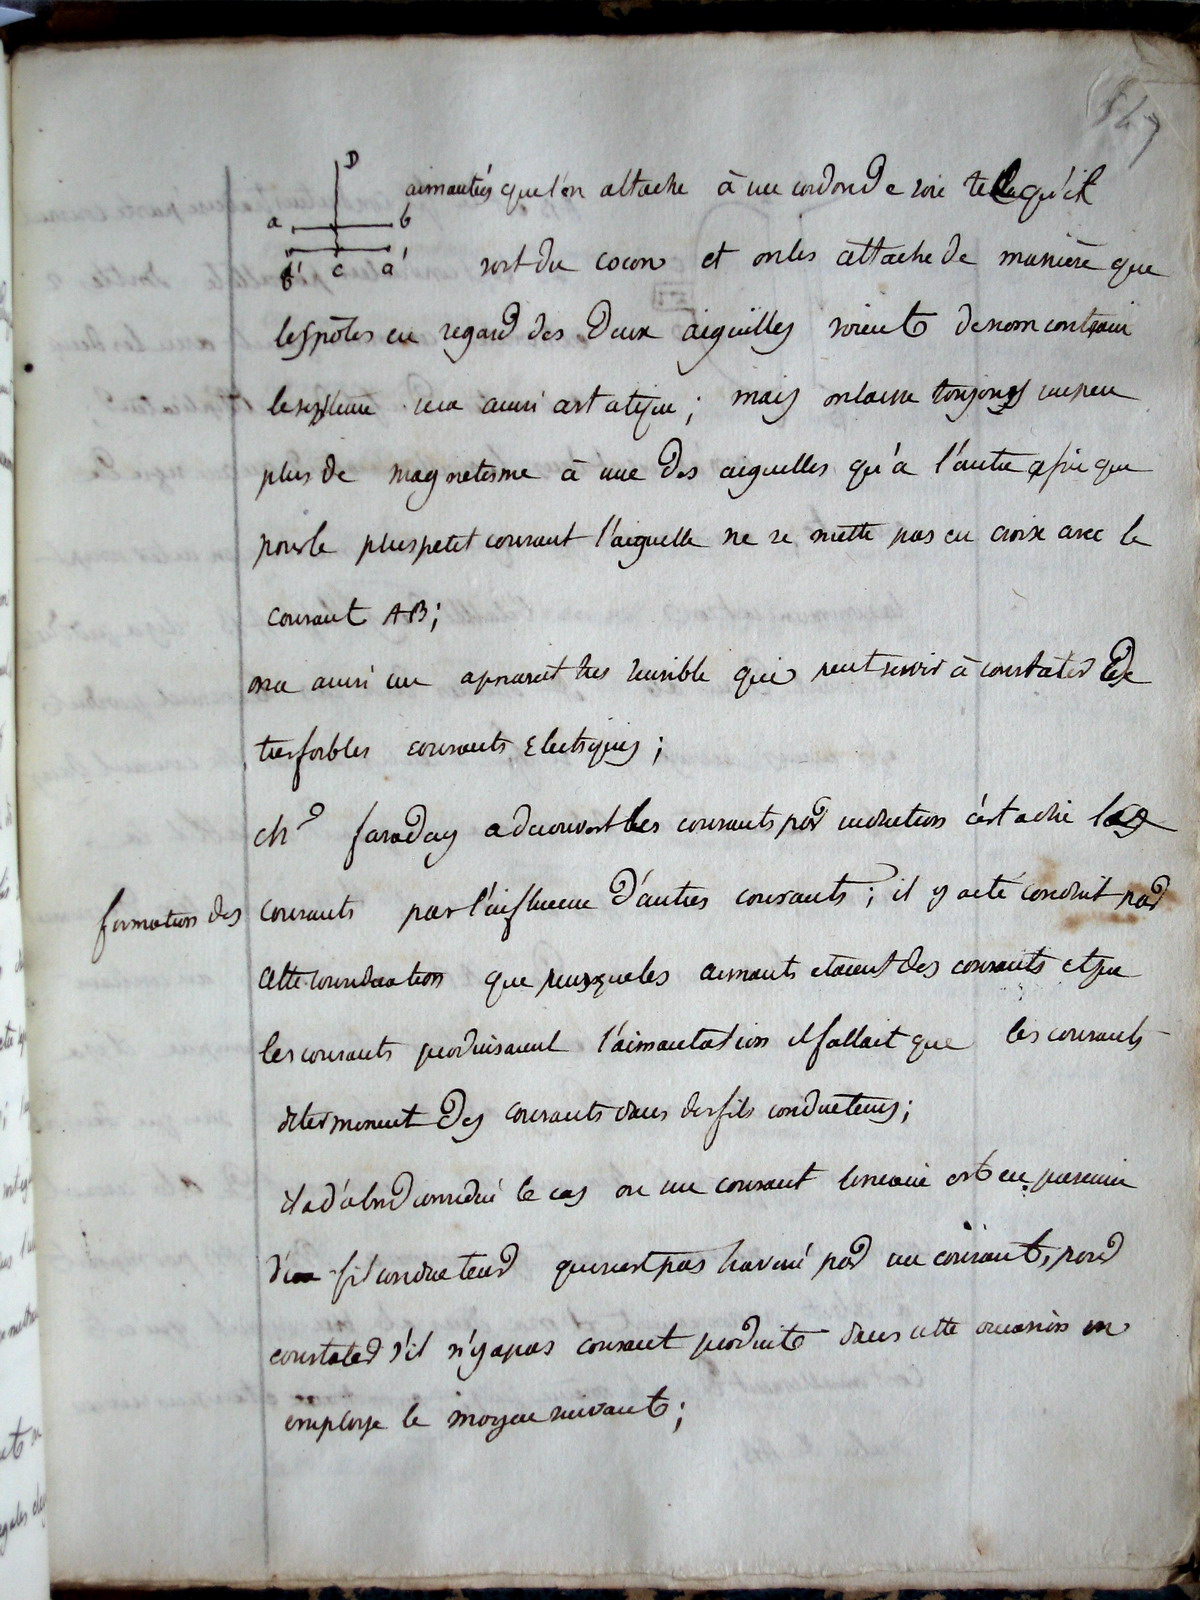 547
D
a b
b' c a'
aimantés que l'on attache à un cordon de soie tel qu'il
sort du cocon et on les attache de manière que
les pôles en regard des deux aiguilles soient de nom contrair
le système sera aussi astatique; mais on laisse toujours un peu
plus de magnetisme à une des aiguelles qu'a l'autre afin que
pour le plus petit courant l'aiguelle ne se mette pas en croix avec le
courant AB;
on a aussi un apparait tres sensible qui peut servir à constater de
tres foibles courants Electriques;
Mr faraday a decouvert les courants par induction c'est a dire la
formation des courants par l'influence d'autres courants; il y a eté conduit par
cette consideration que puisque les aimants etaient des courants et que
les courants produisaient l'aimantation il fallait que les courants
determinent des courants dans des fils conducteurs;
il a d'abord consideré le cas ou un courant lineaire est en presence
d'un fil conducteur qui n'est pas traversé par un courant, pour
constater s'il n'y a pas courant produit dans cette occasion on
employe le moyen suivant;